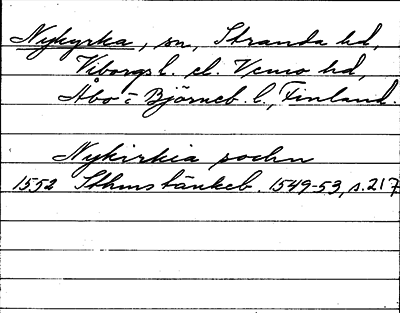 Nykyrka, sn, Stranda hd,
Viborgs l. el. Vemo hd,
Åbo- o Björneb. l., Finland.
Nykirkia sochn
1552 Sthms tänkeb. 1549-53, s. 217